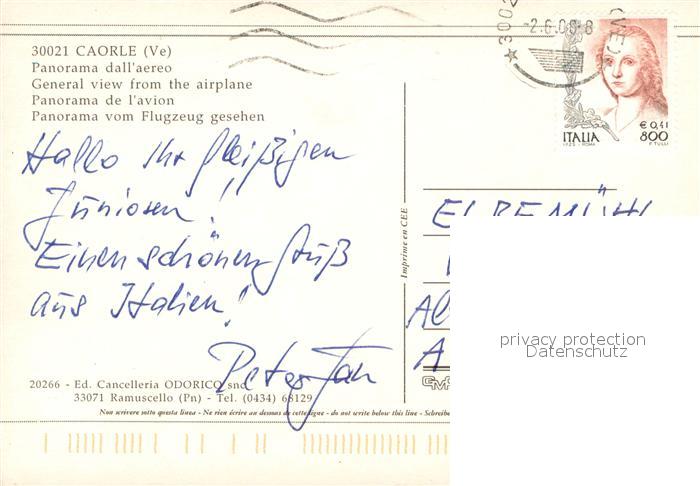 30021 CAORLE (Ve)
Panorama dall'aereo
General view from the airplane
Panorama de l'avion
Panorama vom Flugzeug gesehen
Hallo Ihr fleißigen
!
Einen schönen Gruß
aus Italien!
Peter
20266 - Ed. Cancelleria ODORICO snc
33071 Ramuscello (Pn) - Tel. (0434) 68129
Non scrivere sotto questa linea - Ne rien écrire au dessous de cette ligne - do not write below this line - Schreiben
Imprime en CEE
3002
-2.6.00-8
(VE)
€ 0,41
ITALIA 800
I.P.Z.S. - ROMA F. TULLI
ELBEMÜHL
privacy protection
Datenschutz